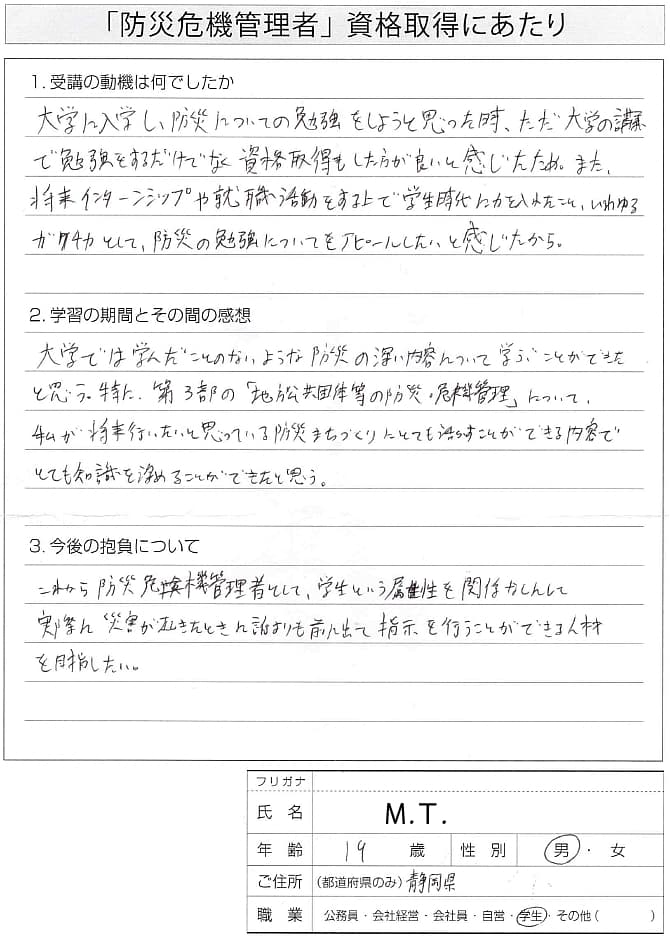 「防災危機管理者」資格取得にあたり
1. 受講の動機は何でしたか
大学に入学し、防災についての勉強をしようと思った時、ただ大学の講義
で勉強をするだけでなく資格取得もした方が良いと感じたため。また、
将来インターンシップや就職活動をする上で学生時代に力を入れたこと、いわゆる
ガクチカとして、防災の勉強についてをアピールしたいと感じたから。
2. 学習の期間とその間の感想
大学では学んだことのないような防災の深い内容について学ぶことができた
と思う。特に、第3部の「地方公共団体等の防災・危機管理」について、
私が将来行いたいと思っている防災まちづくりにとても活かすことができる内容で
とても知識を深めることができたと思う。
3. 今後の抱負について
これから防災危機管理者として、学生という属性を関係なしにして
実際に災害が起きたときに誰よりも前に出て指示を行うことができる人材
を目指したい。
フリガナ
氏名 M.T.
年齢 19 歳 性別 男・女
ご住所 (都道府県のみ) 静岡県
職業 公務員・会社経営・会社員・自営・学生・その他( )